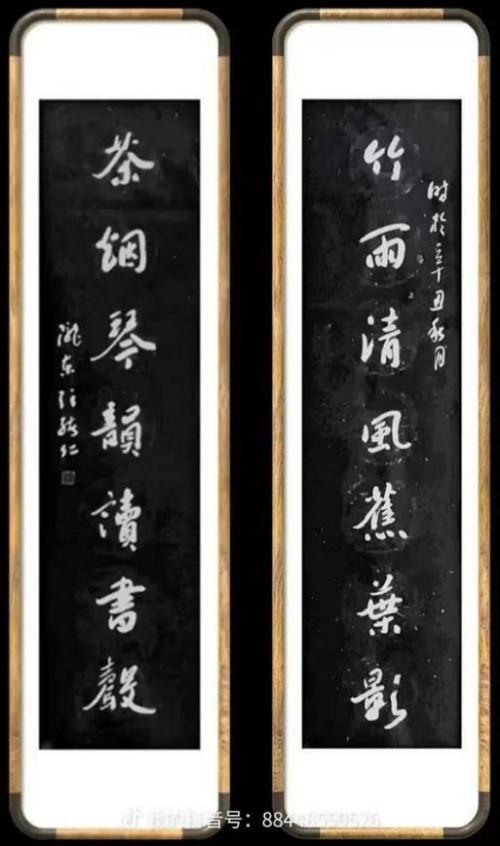 时於辛丑秋月
竹雨清風蕉葉影
茶烟琴韻讀書聲
隴东仁
我的抖音号：88448559526